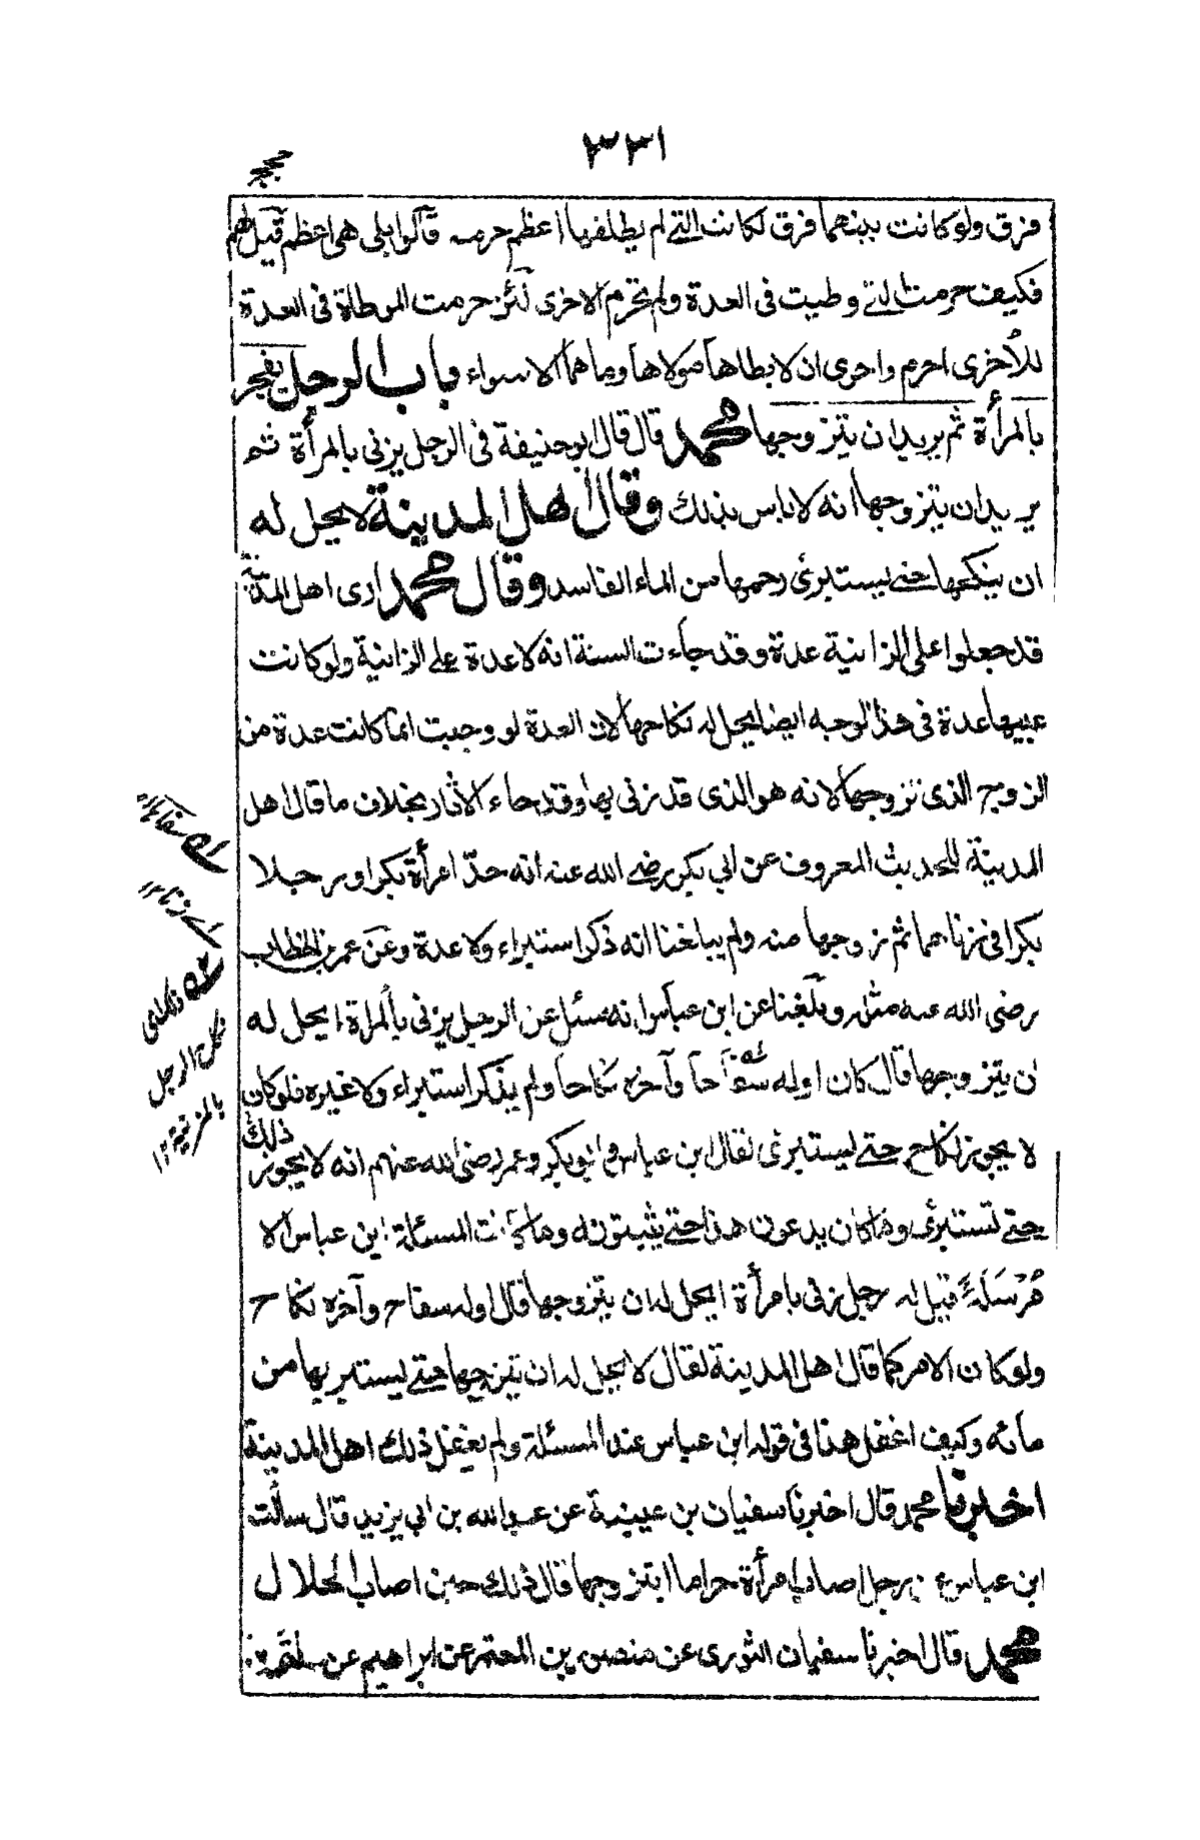 ٣٣١
فرق ولو كانت بينهما فرق لكانت التي لم يطلقها اعظم حرمه قالوا بلى هى اعظم قيل لهم
فكيف حرمت التي وطيت فى العدة ولم تحرم الاخرى لئن حرمت الموطاة فى العدة
للأخرى احرم واحرى ان لا يطاها مولاها وما هما الا سواء باب الرجل يفجر
بالمرأة ثم يريد ان يتزوجها محمد قال قال ابو حنيفة فى الرجل يزنى بالمرأة ثم
يريد ان يتزوجها انه لا باس بذلك وقال اهل المدينة لا يحل له
ان ينكحها حتى يستبرئ رحمها من الماء الفاسد وقال محمد ارى اهل المدينة
قد جعلوا على الزانية عدة وقد جاءت السنة انه لا عدة على الزانية ولو كانت
عليها عدة فى هذا الوجه ايضا يحل له نكاحها لان العدة لو وجبت انما كانت عدة من
الزوج الذى تزوجها لانه هو الذى قد زنى بها وقد جاء الاثار بخلاف ما قال اهل
المدينة للحديث المعروف عن ابي بكر رضى الله عنه أنه حدّ امرأة بكرا ورجلا
بكرا فى زناهما ثم زوجها منه ولم يبلغنا انه ذكر استبراء ولا عدة وعن عمر بن الخطاب
رضى الله عنه مثله وبلغنا عن ابن عباس انه سئل عن الرجل يزنى بالمراة ايحل له
ان يتزوجها قال كان اوله سفاحا وآخره نكاحا ولم يذكر استبراء ولا غيره فلو كان
ذلك
لا يجوز نكاح حتى يستبرئ لقال ابن عباس وابو بكر وعمر رضى الله عنهم انه لا يجوز
حتى تستبرئ وما كان يدعون هذا حتى يثبتونه وما كانت المسئلة ابن عباس الا
مُرْسَلَةً قيل له رجل زنى بامرأة ايحل له ان يتزوجها قال اوله سفاح وآخره نكاح
ولو كان الامر كما قال اهل المدينة لقال لا يحل له ان يتزوجها حتى يستبريها من
مائه وكيف اغفل هذا فى قوله ابن عباس عند المسئلة ولم يغفل ذلك اهل المدينة
اخبرنا محمد قال اخبرنا سفيان بن عيينة عن عبيد الله بن ابي يزيد قال سألت
ابن عباس عن رجل اصاب امرأة حراما ايتزوجها قال ذلك حين اصاب الحلال
محمد قال اخبرنا سفيان الثورى عن منصور بن المعتمر عن ابراهيم عن علقمة
اے زنا ١٢
نكاح الرجل
بالمزنية ١٢